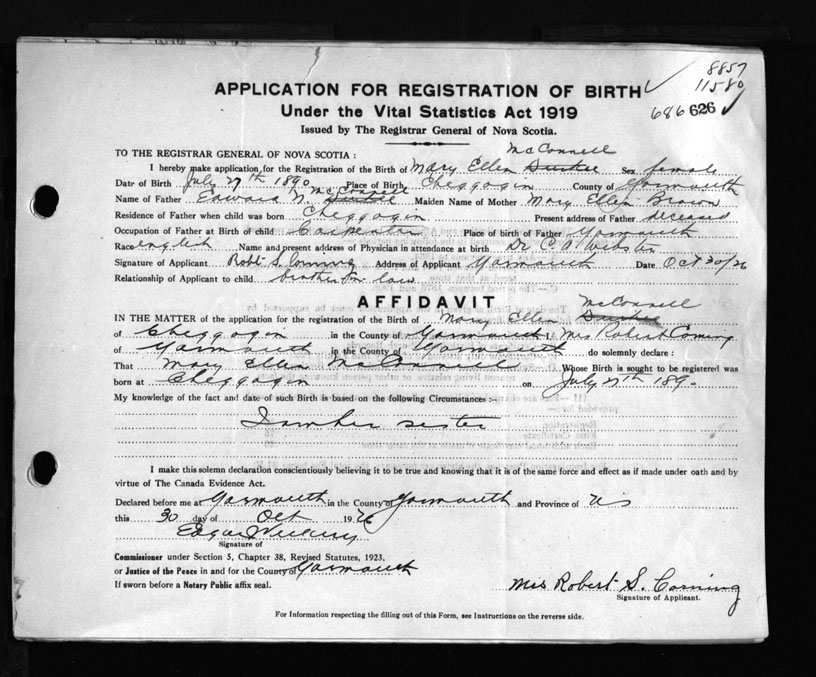 8857
11580
686 626
APPLICATION FOR REGISTRATION OF BIRTH
Under the Vital Statistics Act 1919
Issued by The Registrar General of Nova Scotia.
McConnell
TO THE REGISTRAR GENERAL OF NOVA SCOTIA :
I hereby make application for the Registration of the Birth of Mary Ellen Sex female
Date of Birth July 27th 1890 Place of Birth Cheggogin County of Yarmouth
McConnell
Name of Father Edward N. Maiden Name of Mother Mary Ellen Brown
Residence of Father when child was born Cheggogin Present address of Father deceased
Occupation of Father at Birth of child Carpenter Place of birth of Father Yarmouth
Race English Name and present address of Physician in attendance at birth Dr C. A. Webster
Signature of Applicant Robt S. Corning Address of Applicant Yarmouth Date Oct 30/26
Relationship of Applicant to child brother in law
AFFIDAVIT
McConnell
IN THE MATTER of the application for the registration of the Birth of Mary Ellen
of Cheggogin in the County of Yarmouth I, Mrs Robert Corning
of Yarmouth in the County of Yarmouth do solemnly declare :
That Mary Ellen McConnell Whose Birth is sought to be registered was
born at Cheggogin on July 27th 1890
My knowledge of the fact and date of such Birth is based on the following Circumstances :-
I am her sister
I make this solemn declaration conscientiously believing it to be true and knowing that it is of the same force and effect as if made under oath and by
virtue of The Canada Evidence Act.
Declared before me at Yarmouth in the County of Yarmouth and Province of NS
this 30 day of Oct 1926
Edgar
Signature of
Commissioner under Section 5, Chapter 38, Revised Statutes, 1923,
or Justice of the Peace in and for the County of Yarmouth
If sworn before a Notary Public affix seal.
Mrs Robert S. Corning
Signature of Applicant.
For Information respecting the filling out of this Form, see Instructions on the reverse side.